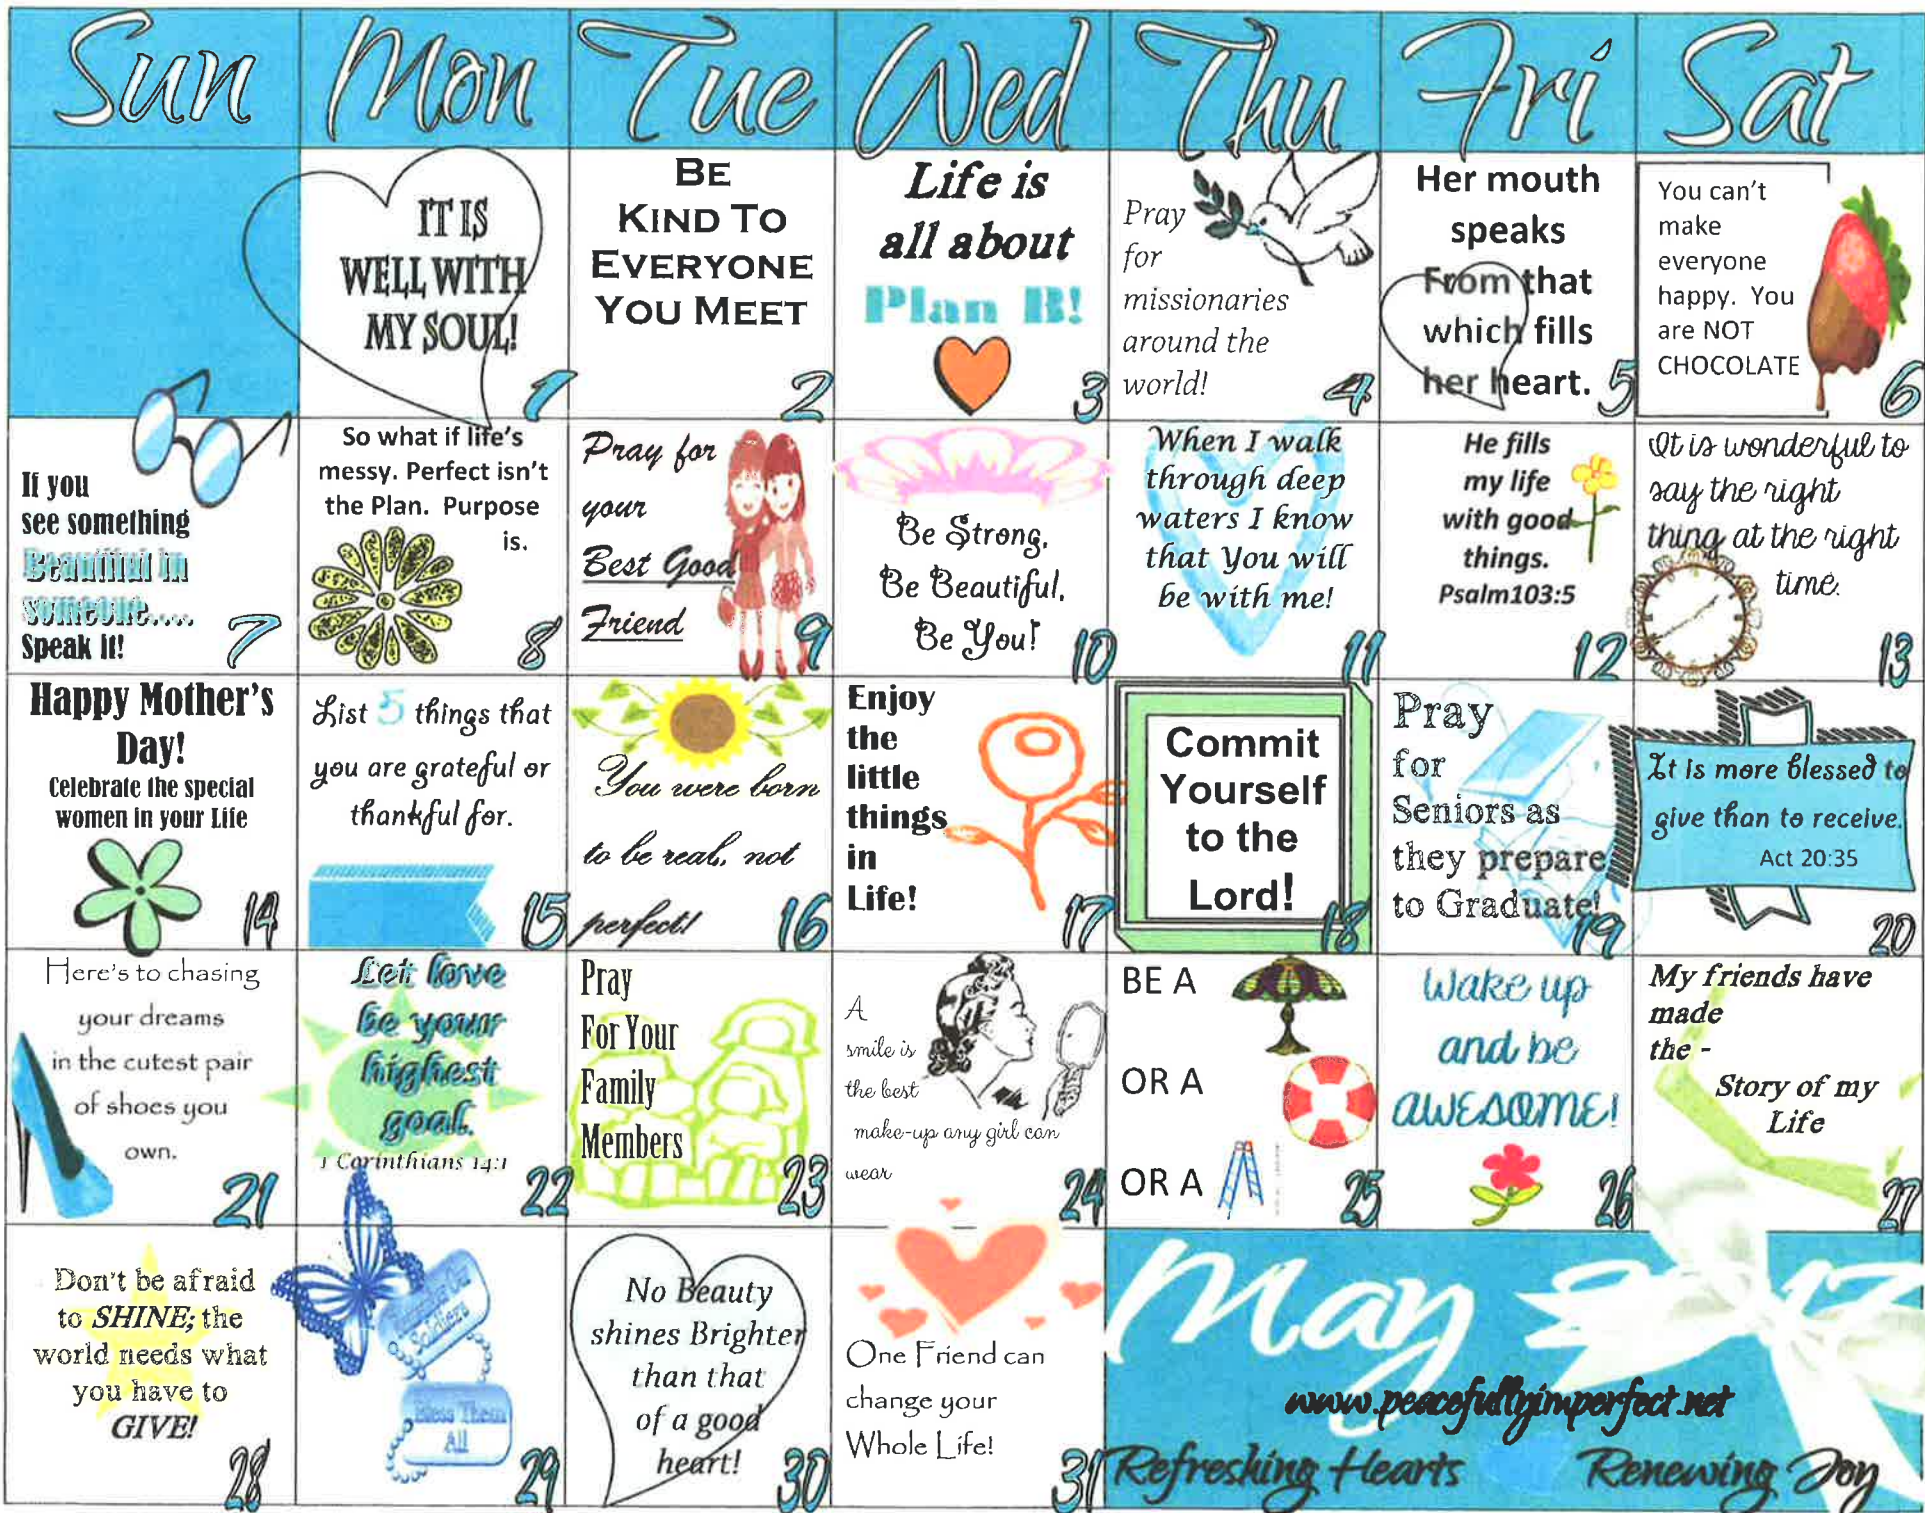 Sun Mon Tue Wed Thu Fri Sat
IT IS
WELL WITH
MY SOUL!
1
BE
KIND TO
EVERYONE
YOU MEET
2
Life is
all about
Plan B!
3
Pray
for
missionaries
around the
world!
4
Her mouth
speaks
From that
which fills
her heart.
5
You can't
make
everyone
happy. You
are NOT
CHOCOLATE
6
If you
see something
Beautiful in
someone....
Speak it!
7
So what if life's
messy. Perfect isn't
the Plan. Purpose
is.
8
Pray for
your
Best Good
Friend
9
Be Strong,
Be Beautiful,
Be You!
10
When I walk
through deep
waters I know
that You will
be with me!
11
He fills
my life
with good
things.
Psalm103:5
12
It is wonderful to
say the right
thing at the right
time.
13
Happy Mother's
Day!
Celebrate the special
women in your Life
14
List 5 things that
you are grateful or
thankful for.
15
You were born
to be real, not
perfect!
16
Enjoy
the
little
things
in
Life!
17
Commit
Yourself
to the
Lord!
18
Pray
for
Seniors as
they prepare
to Graduate!
19
It is more blessed to
give than to receive.
Act 20:35
20
Here's to chasing
your dreams
in the cutest pair
of shoes you
own.
21
Let love
be your
highest
goal.
1 Corinthians 14:1
22
Pray
For Your
Family
Members
23
A
smile is
the best
make-up any girl can
wear
24
BE A
OR A
OR A
25
Wake up
and be
AWESOME!
26
My friends have
made
the -
Story of my
Life
27
Don't be afraid
to SHINE; the
world needs what
you have to
GIVE!
28
Our
Soldiers
Bless Them
All
29
No Beauty
shines Brighter
than that
of a good
heart!
30
One Friend can
change your
Whole Life!
31
May 2017
www.peacefullyimperfect.net
Refreshing Hearts Renewing Joy